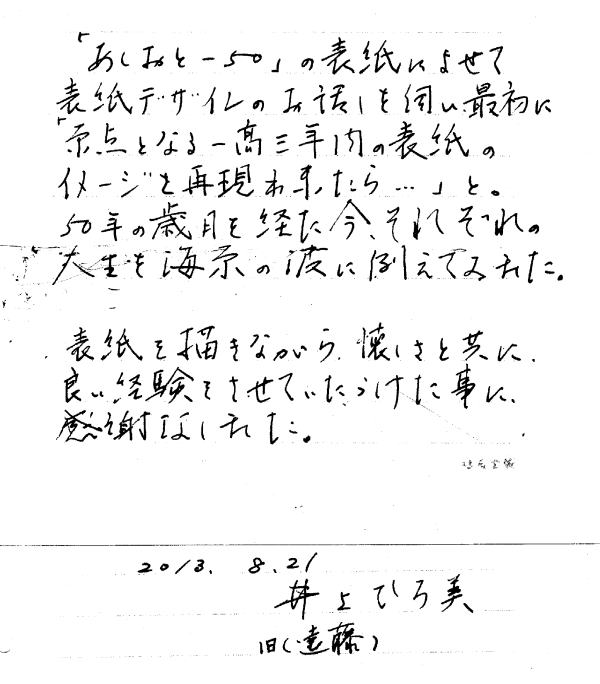 「あしおと－50」の表紙によせて
表紙デザインのお話しを伺い最初に
「原点となる一高三年内の表紙の
イメージを再現出来たら…」と。
50年の歳月を経た今、それぞれの
人生を海原の波に例えてみました。
表紙を描きながら、懐しさと共に、
良い経験をさせていただけた事に、
感謝致しました。
2013. 8.21
井上ひろ美
旧(遠藤)